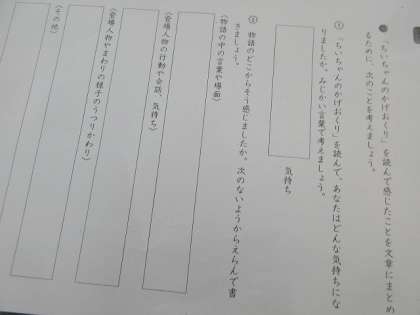 ●「ちいちゃんのかげおくり」を読んで感じたことを文章にまとめ
るために、次のことを考えましょう。
①「ちいちゃんのかげおくり」を読んで、あなたはどんな気持ちにな
りましたか。みじかい言葉で考えましょう。
気持ち
② 物語のどこからそう感じましたか。次のないようからえらんで書
きましょう。
(物語の中の言葉や場面)
(登場人物の行動や会話、気持ち)
(登場人物やまわりの様子のうつりかわり)
(その他)